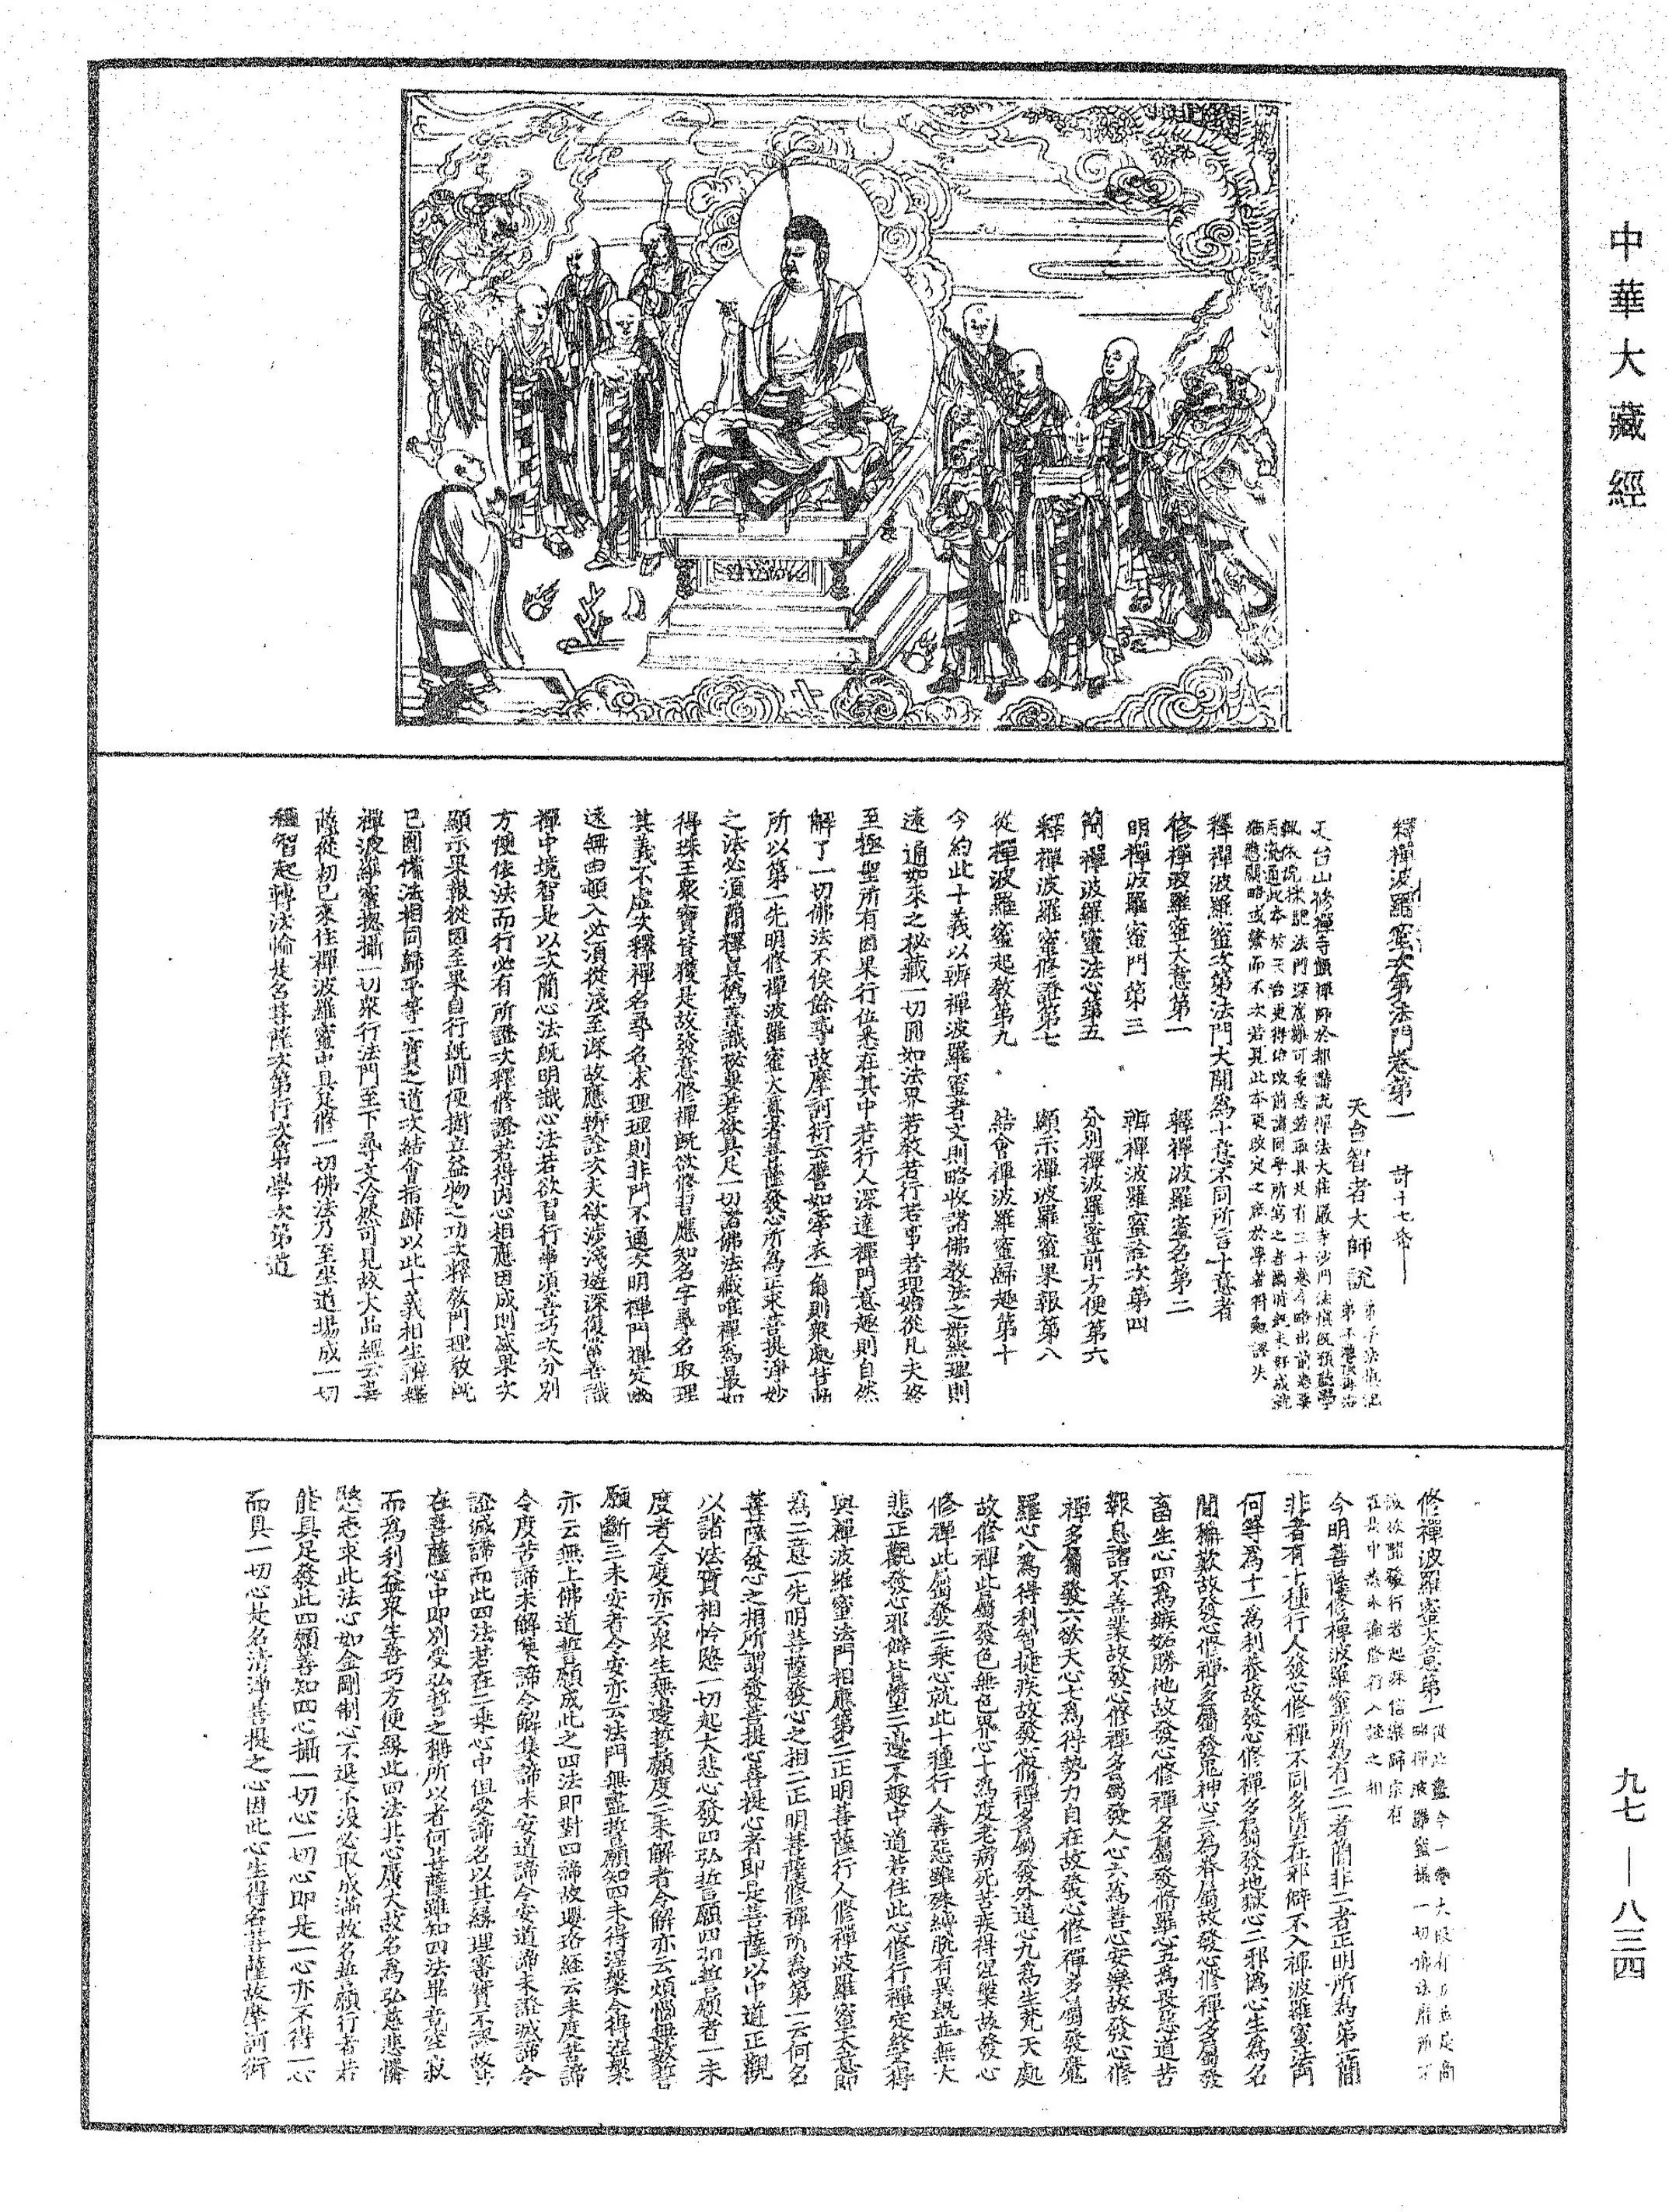 中華大藏經
釋禪波羅蜜次第法門卷第一
天台智者大師說
天台山修禪寺顗禪師於都
釋禪波羅蜜次第法門大開為十意不同所言十意者
修禪波羅蜜大意第一 釋禪波羅蜜名第二
明禪波羅蜜門第三 辨禪波羅蜜詮次第四
簡禪波羅蜜法心第五 分別禪波羅蜜前方便第六
釋禪波羅蜜修證第七 顯示禪波羅蜜果報第八
從禪波羅蜜起教第九 結會禪波羅蜜歸趣第十
今約此十義以辨禪波羅蜜者文則略收諸佛教法之始終理則
遠通如來之祕藏一切圓如法界若教若行若事若理始從凡夫終
至極聖所有因果行位悉在其中若行人深達禪門意趣則自然
解了一切佛法不俟餘尋故摩訶衍云譬如牽衣一角則眾處皆動
所以第一先明修禪波羅蜜大意者菩薩發心所為正求菩提淨妙
之法必須簡擇真偽善識祕要若欲具足一切諸佛法藏唯禪為最如
得珠玉眾寶皆獲是故發意修禪既欲修習應知名字尋名取理
其義不虛次釋禪名尋名求理理則非門不通次明禪門禪定幽
遠無由頓入必須從淺至深故應辨詮次夫欲涉淺遊深復當善識
禪中境智是以次簡心法既明識心法若欲習行事須善巧次分別
方便依法而行必有所證次釋修證若得內心相應因成則感果次
顯示果報從因至果自行既圓便樹立益物之功次釋教門理教既
已圓備法相同歸平等一實之道次結會指歸以此十義相生辨釋
禪波羅蜜揔攝一切眾行法門至下尋文冷然可見故大品經云菩
薩從初已來住禪波羅蜜中具足修一切佛法乃至坐道場成一切
種智起轉法輪是名菩薩次第行次第學次第道
修禪波羅蜜大意第一
今明菩薩修禪波羅蜜所為有二一者簡非二者正明所為第一簡
非者有十種行人發心修禪不同多墮在邪僻不入禪波羅蜜法門
何等為十一為利養故發心修禪多屬發地獄心二邪偽心生為名
聞稱歎故發心修禪多屬發鬼神心三為眷屬故發心修禪多屬發
畜生心四為嫉妬勝他故發心修禪多屬發修羅心五為畏惡道苦
報息諸不善業故發心修禪多屬發人心六為善心安樂故發心修
禪多屬發六欲天心七為得勢力自在故發心修禪多屬發魔
羅心八為得利智捷疾故發心修禪多屬發外道心九為生梵天處
故修禪此屬發色無色界心十為度老病死苦疾得涅槃故發心
修禪此屬發二乘心就此十種行人善惡雖殊縛脫有異既並無大
悲正觀發心邪僻皆墮二邊不趣中道若住此心修行禪定終不得
與禪波羅蜜法門相應第二正明菩薩行人修禪波羅蜜大意即
為二意一先明菩薩發心之相二正明菩薩修禪所為第一云何名
菩薩發心之相所謂發菩提心菩提心者即是菩薩以中道正觀
以諸法實相怜愍一切起大悲心發四弘誓願四弘誓願者一未
度者令度亦云眾生無邊誓願度二未解者令解亦云煩惱無數誓
願斷三未安者令安亦云法門無盡誓願知四未得涅槃令得涅槃
亦云無上佛道誓願成此之四法即對四諦故纓珞經云未度苦諦
令度苦諦未解集諦令解集諦未安道諦令安道諦未證滅諦令
證滅諦而此四法若在二乘心中但受諦名以其緣理審實不謬故
在菩薩心中即別受弘誓之稱所以者何菩薩雖知四法畢竟空寂
而為利益眾生善巧方便緣此四法其心廣大故名為弘慈悲憐
愍志求此法心如金剛制心不退不沒必取成滿故名誓願行者若
能具足發此四願善知四心攝一切心一切心即是一心亦不得一心
而具一切心是名清淨菩提之心因此心生得名菩薩故摩訶衍
九七—八三四